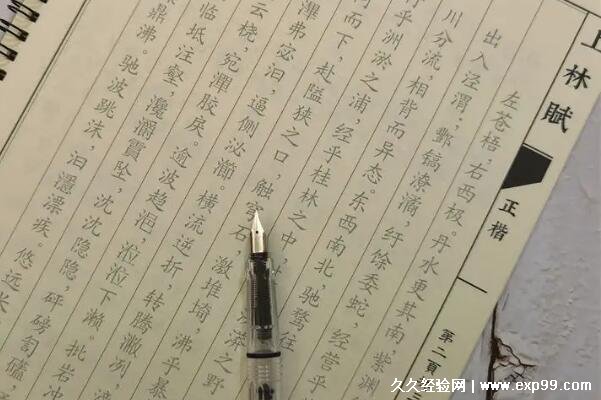 林賦
正楷
第二頁
左苍梧,右西极。丹水更其南,紫渊
出入泾渭,酆镐潦潏,纡馀委蛇,经营乎
川分流,相背而异态。东西南北,驰骛往
乎洲淤之浦,经乎桂林之中,
而下,赴隘狭之口,触穹石,激堆埼,沸乎暴
滭弗宓汨,逼侧泌瀄。横流逆折,转腾潎洌,
云桡,宛潬胶戾。逾波趋浥,涖涖下濑。批岩冲
临坻注壑,瀺灂霣坠,沈沈隐隐,砰磅訇礚
鼎沸。驰波跳沫,汩㴔漂疾。悠远
之野
久久经验网 www.exp99.com